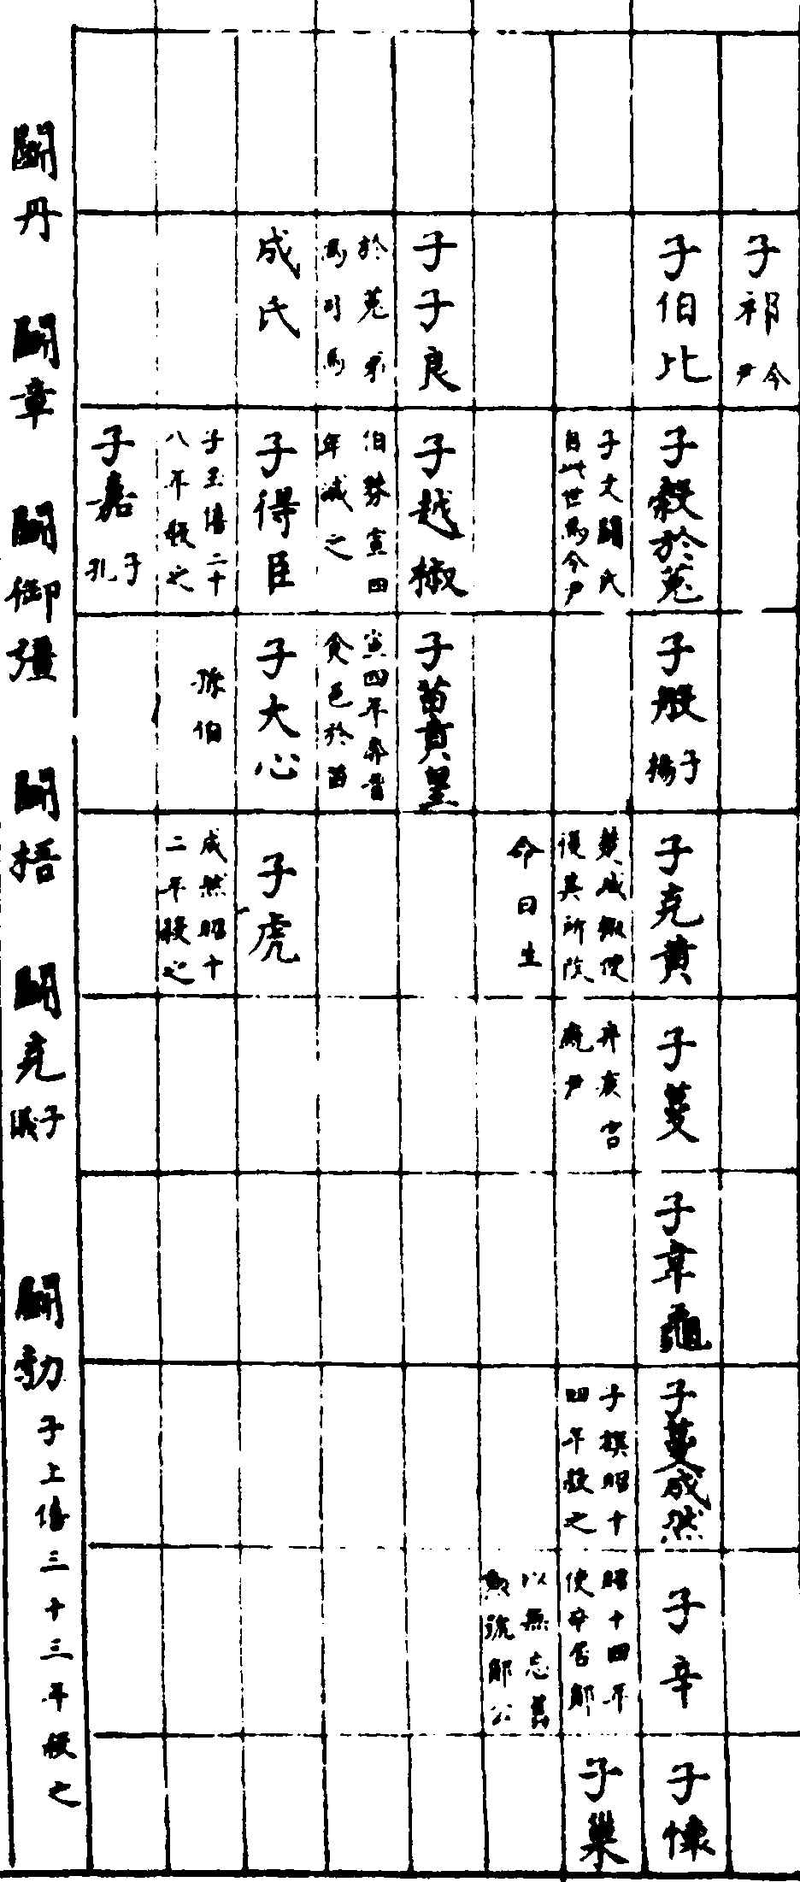 子祁令尹
子伯比
子穀於菟
子文鬭氏
自此世為令尹
子般子揚
子克黃
楚成
復其所改
命曰生
子蔓
子韋龜
子蔓成然
子旗昭十
四年殺之
子辛
昭十四年
使辛居鄖
以無忘舊
勳號鄖公
子懷
子巢
子子良
於菟弟
為司馬
子越椒
伯棼宣四
年滅之
子苗賁皇
宣四年奔晉
食邑於苗
成氏
子得臣
子玉僖二十
八年殺之
子大心
孫伯
子虎
成熊昭十
二年殺之
子嘉子孔
鬭丹
鬭章
鬭御彊
鬭梧
鬭克子儀
鬭勃子上僖三十三年殺之